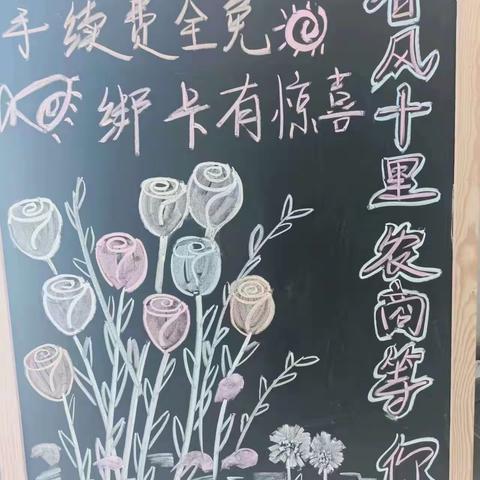 手续费全免
绑卡有惊喜
春风十里农商等你